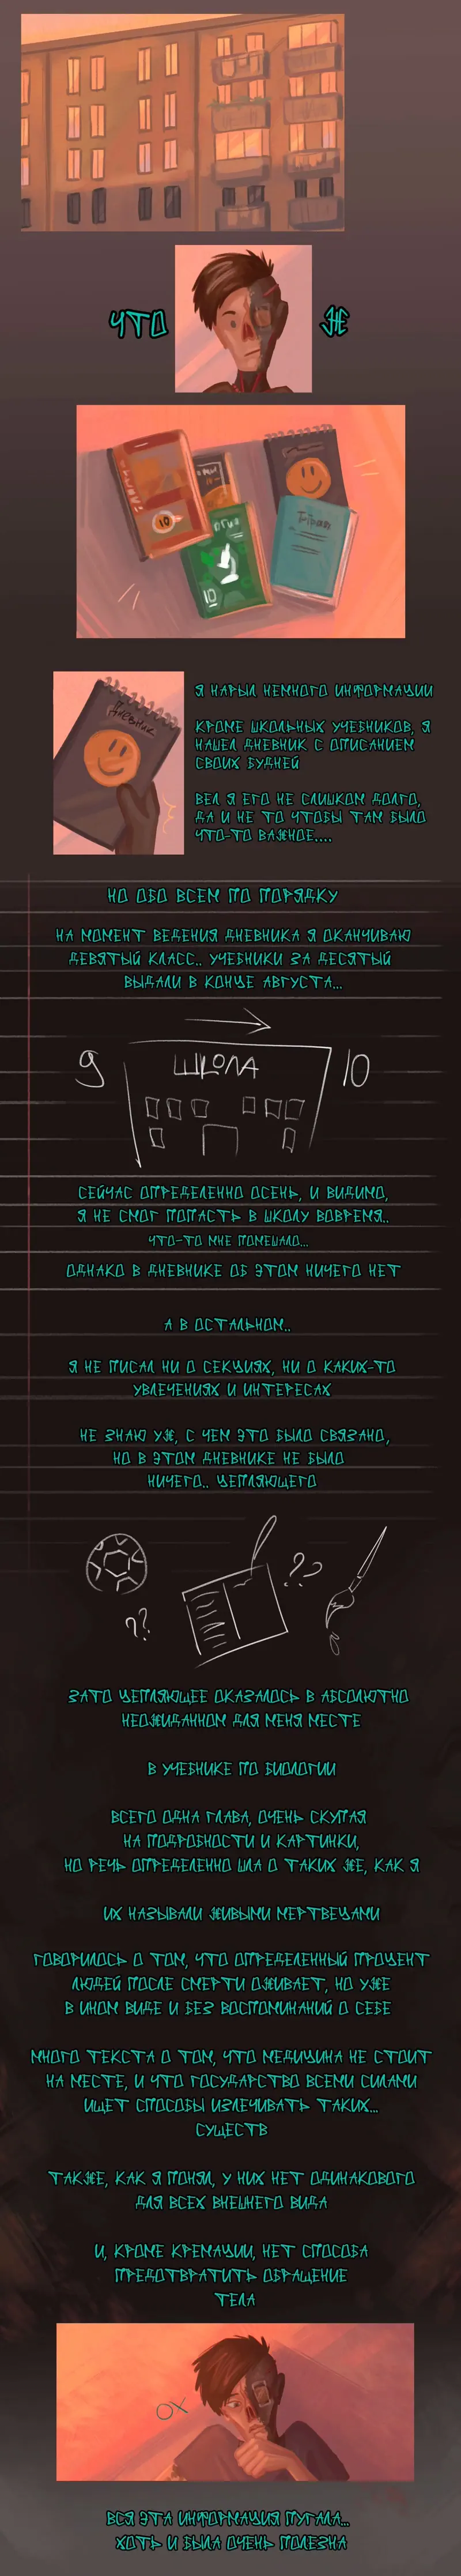 ЧТО ЖЕ
10
10
Дневник
Я НАРЫЛ НЕМНОГО ИНФОРМАЦИИ
КРОМЕ ШКОЛЬНЫХ УЧЕБНИКОВ, Я
НАШЕЛ ДНЕВНИК С ОПИСАНИЕМ
СВОИХ БУДНЕЙ
ВЕЛ Я ЕГО НЕ СЛИШКОМ ДОЛГО,
ДА И НЕ ТО ЧТОБЫ ТАМ БЫЛО
ЧТО-ТО ВАЖНОЕ....
НО ОБО ВСЕМ ПО ПОРЯДКУ
НА МОМЕНТ ВЕДЕНИЯ ДНЕВНИКА Я ОКАНЧИВАЮ
ДЕВЯТЫЙ КЛАСС.. УЧЕБНИКИ ЗА ДЕСЯТЫЙ
ВЫДАЛИ В КОНЦЕ АВГУСТА...
9 ШКОЛА 10
СЕЙЧАС ОПРЕДЕЛЕННО ОСЕНЬ, И ВИДИМО,
Я НЕ СМОГ ПОПАСТЬ В ШКОЛУ ВОВРЕМЯ..
ЧТО-ТО МНЕ ПОМЕШАЛО...
ОДНАКО В ДНЕВНИКЕ ОБ ЭТОМ НИЧЕГО НЕТ
А В ОСТАЛЬНОМ..
Я НЕ ПИСАЛ НИ О СЕКЦИЯХ, НИ О КАКИХ-ТО
УВЛЕЧЕНИЯХ И ИНТЕРЕСАХ
НЕ ЗНАЮ УЖ, С ЧЕМ ЭТО БЫЛО СВЯЗАНО,
НО В ЭТОМ ДНЕВНИКЕ НЕ БЫЛО
НИЧЕГО.. ЦЕПЛЯЮЩЕГО
??
??
ЗАТО ЦЕПЛЯЮЩЕЕ ОКАЗАЛОСЬ В АБСОЛЮТНО
НЕОЖИДАННОМ ДЛЯ МЕНЯ МЕСТЕ
В УЧЕБНИКЕ ПО БИОЛОГИИ
ВСЕГО ОДНА ГЛАВА, ОЧЕНЬ СКУПАЯ
НА ПОДРОБНОСТИ И КАРТИНКИ,
НО РЕЧЬ ОПРЕДЕЛЕННО ШЛА О ТАКИХ ЖЕ, КАК Я
ИХ НАЗЫВАЛИ ЖИВЫМИ МЕРТВЕЦАМИ
ГОВОРИЛОСЬ О ТОМ, ЧТО ОПРЕДЕЛЕННЫЙ ПРОЦЕНТ
ЛЮДЕЙ ПОСЛЕ СМЕРТИ ОЖИВАЕТ, НО УЖЕ
В ИНОМ ВИДЕ И БЕЗ ВОСПОМИНАНИЙ О СЕБЕ
МНОГО ТЕКСТА О ТОМ, ЧТО МЕДИЦИНА НЕ СТОИТ
НА МЕСТЕ, И ЧТО ГОСУДАРСТВО ВСЕМИ СИЛАМИ
ИЩЕТ СПОСОБЫ ИЗЛЕЧИВАТЬ ТАКИХ...
СУЩЕСТВ
ТАКЖЕ, КАК Я ПОНЯЛ, У НИХ НЕТ ОДИНАКОВОГО
ДЛЯ ВСЕХ ВНЕШНЕГО ВИДА
И, КРОМЕ КРЕМАЦИИ, НЕТ СПОСОБА
ПРЕДОТВРАТИТЬ ОБРАЩЕНИЕ
ТЕЛА
ОХ
ВСЯ ЭТА ИНФОРМАЦИЯ ПУГАЛА...
ХОТЬ И БЫЛА ОЧЕНЬ ПОЛЕЗНА